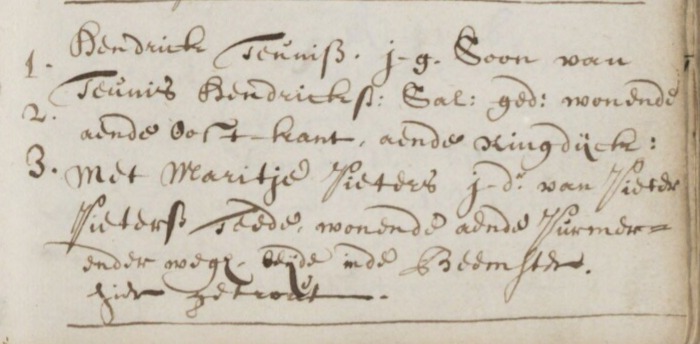 1. Hendrick Teuniß. j-g. Soon van
2. Teunis Hendricksß: Sal: ged: wonende
aende Oost-kant, aende Ringdijck:
3. Met Maritje Pieters j-d. van Pieter
Pietersß Teede, wonende aende Purmer=
ender wegh, beijde inde Beemster.
hier getrout.